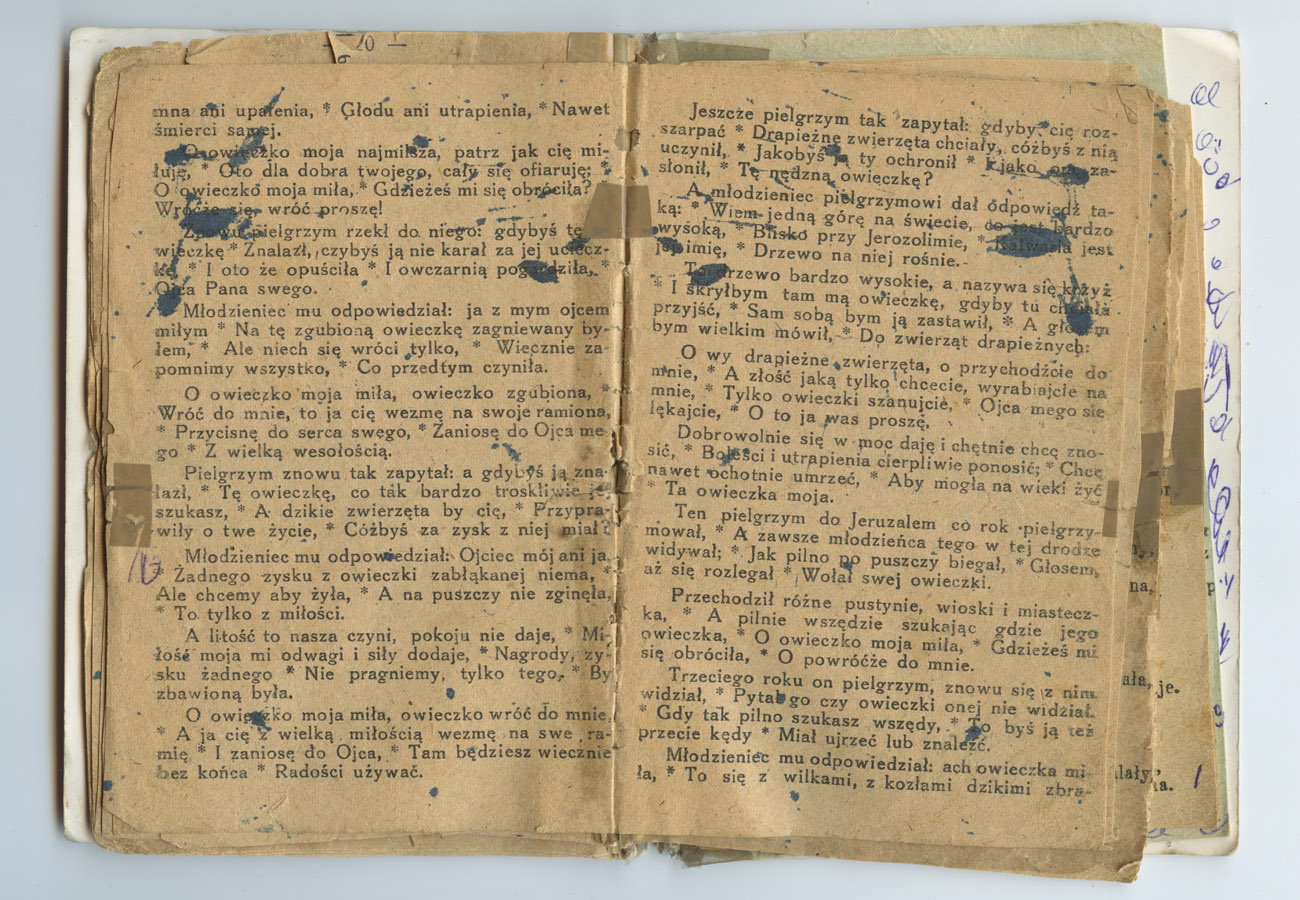 20 —
mna ani upalenia, * Głodu ani utrapienia, * Nawet
śmierci samej.
O owieczko moja najmilsza, patrz jak cię mi-
łuję, * Oto dla dobra twojego, cały się ofiaruję; *
O owieczko moja miła, * Gdzieżeś mi się obróciła? *
Wróćże się, wróć proszę!
Znowu pielgrzym rzekł do niego: gdybyś tę
wieczkę * Znalazł, czybyś ją nie karał za jej uciecz-
kę, * I oto że opuściła * I owczarnią pogardziła, *
Ojca Pana swego.
Młodzieniec mu odpowiedział: ja z mym ojcem
miłym * Na tę zgubioną owieczkę zagniewany by-
łem, * Ale niech się wróci tylko, * Wiecznie za-
pomnimy wszystko, * Co przedtym czyniła.
O owieczko moja miła, owieczko zgubiona, *
Wróć do mnie, to ja cię wezmę na swoje ramiona,
* Przycisnę do serca swego, * Zaniosę do Ojca me-
go * Z wielką wesołością.
Pielgrzym znowu tak zapytał: a gdybyś ją zna-
lazł, * Tę owieczkę, co tak bardzo troskliwie jej
szukasz, * A dzikie zwierzęta by cię, * Przypra-
wiły o twe życie, * Cóżbyś za zysk z niej miał?
Młodzieniec mu odpowiedział: Ojciec mój ani ja
* Żadnego zysku z owieczki zabłąkanej niema, *
Ale chcemy aby żyła, * A na puszczy nie zginęła,
* To tylko z miłości.
A litość to nasza czyni, pokoju nie daje, * Mi-
łość moja mi odwagi i siły dodaje, * Nagrody, zy-
sku żadnego * Nie pragniemy, tylko tego, * By
zbawioną była.
O owieczko moja miła, owieczko wróć do mnie,
* A ja cię z wielką miłością wezmę na swe ra-
mię * I zaniosę do Ojca, * Tam będziesz wiecznie
bez końca * Radości używać.
Jeszcze pielgrzym tak zapytał: gdyby cię roz-
szarpać * Drapieżne zwierzęta chciały, cóżbyś z nią
uczynił, * Jakobyś ją ty ochronił * I jako orą za-
słonił, * Tę nędzną owieczkę?
A młodzieniec pielgrzymowi dał odpowiedź ta-
ką: * Wiem jedną górę na świecie, co jest bardzo
wysoką, * Blisko przy Jerozolimie, * Kalwaria jest
jej imię, * Drzewo na niej rośnie.
To drzewo bardzo wysokie, a nazywa się krzyż
* I skryłbym tam mą owieczkę, gdyby tu chciała
przyjść, * Sam sobą bym ją zastawił, * A głosem
bym wielkim mówił, * Do zwierząt drapieżnych:
O wy drapieżne zwierzęta, o przychodźcie do
mnie, * A złość jaką tylko chcecie, wyrabiajcie na
mnie, * Tylko owieczki szanujcie, * Ojca mego się
lękajcie, * O to ja was proszę.
Dobrowolnie się w moc daję i chętnie chcę zno-
sić, * Boleści i utrapienia cierpliwie ponosić; * Chcę
nawet ochotnie umrzeć, * Aby mogła na wieki żyć
* Ta owieczka moja.
Ten pielgrzym do Jeruzalem co rok pielgrzy-
mował, * A zawsze młodzieńca tego w tej drodze
widywał; * Jak pilno po puszczy biegał, * Głosem,
aż się rozlegał * Wołał swej owieczki.
Przechodził różne pustynie, wioski i miastecz-
ka, * A pilnie wszędzie szukając gdzie jego
owieczka, * O owieczko moja miła, * Gdzieżeś mi
się obróciła, * O powróćże do mnie.
Trzeciego roku on pielgrzym, znowu się z nim
widział, * Pytał go czy owieczki onej nie widział.
* Gdy tak pilno szukasz wszędy, * To byś ją też
przecie kędy * Miał ujrzeć lub znaleźć.
Młodzieniec mu odpowiedział: ach owieczka mi-
ła, * To się z wilkami, z kozłami dzikimi zbra-
na,
ała,
je.
lały,